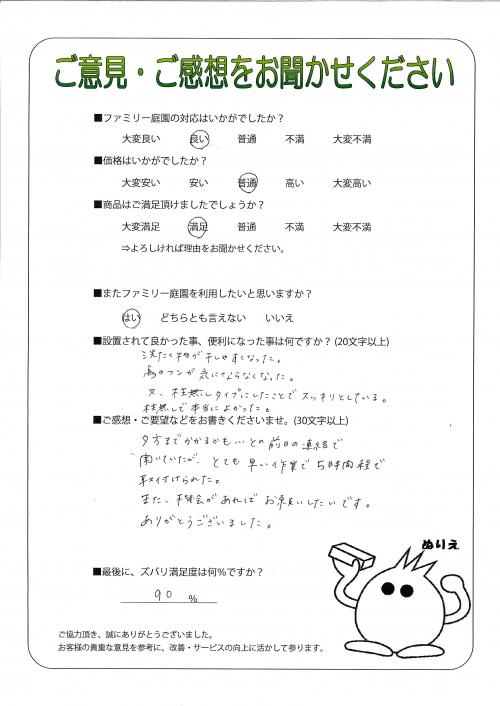 ご意見・ご感想をお聞かせください
■ファミリー庭園の対応はいかがでしたか？
大変良い 良い 普通 不満 大変不満
■価格はいかがでしたか？
大変安い 安い 普通 高い 大変高い
■商品はご満足頂けましたでしょうか？
大変満足 満足 普通 不満 大変不満
⇒よろしければ理由をお聞かせください。
■またファミリー庭園を利用したいと思いますか？
はい どちらとも言えない いいえ
■設置されて良かった事、便利になった事は何ですか？(20文字以上)
洗たく物が干しやすくなった。
鳥のフンが気にならなくなった。
又、柱無しタイプにしたことでスッキリとしている。
柱無しで本当によかった。
■ご感想・ご要望などをお書きくださいませ。(30文字以上)
夕方までかかるかもしいとの前日の連絡で
聞いていたが、とても早い作業で5時間程で
取付けられた。
また、機会があればお願いしたいです。
ありがとうございました。
ぬりえ
■最後に、ズバリ満足度は何%ですか？
90 %
ご協力頂き、誠にありがとうございました。
お客様の貴重な意見を参考に、改善・サービスの向上に活かして参ります。